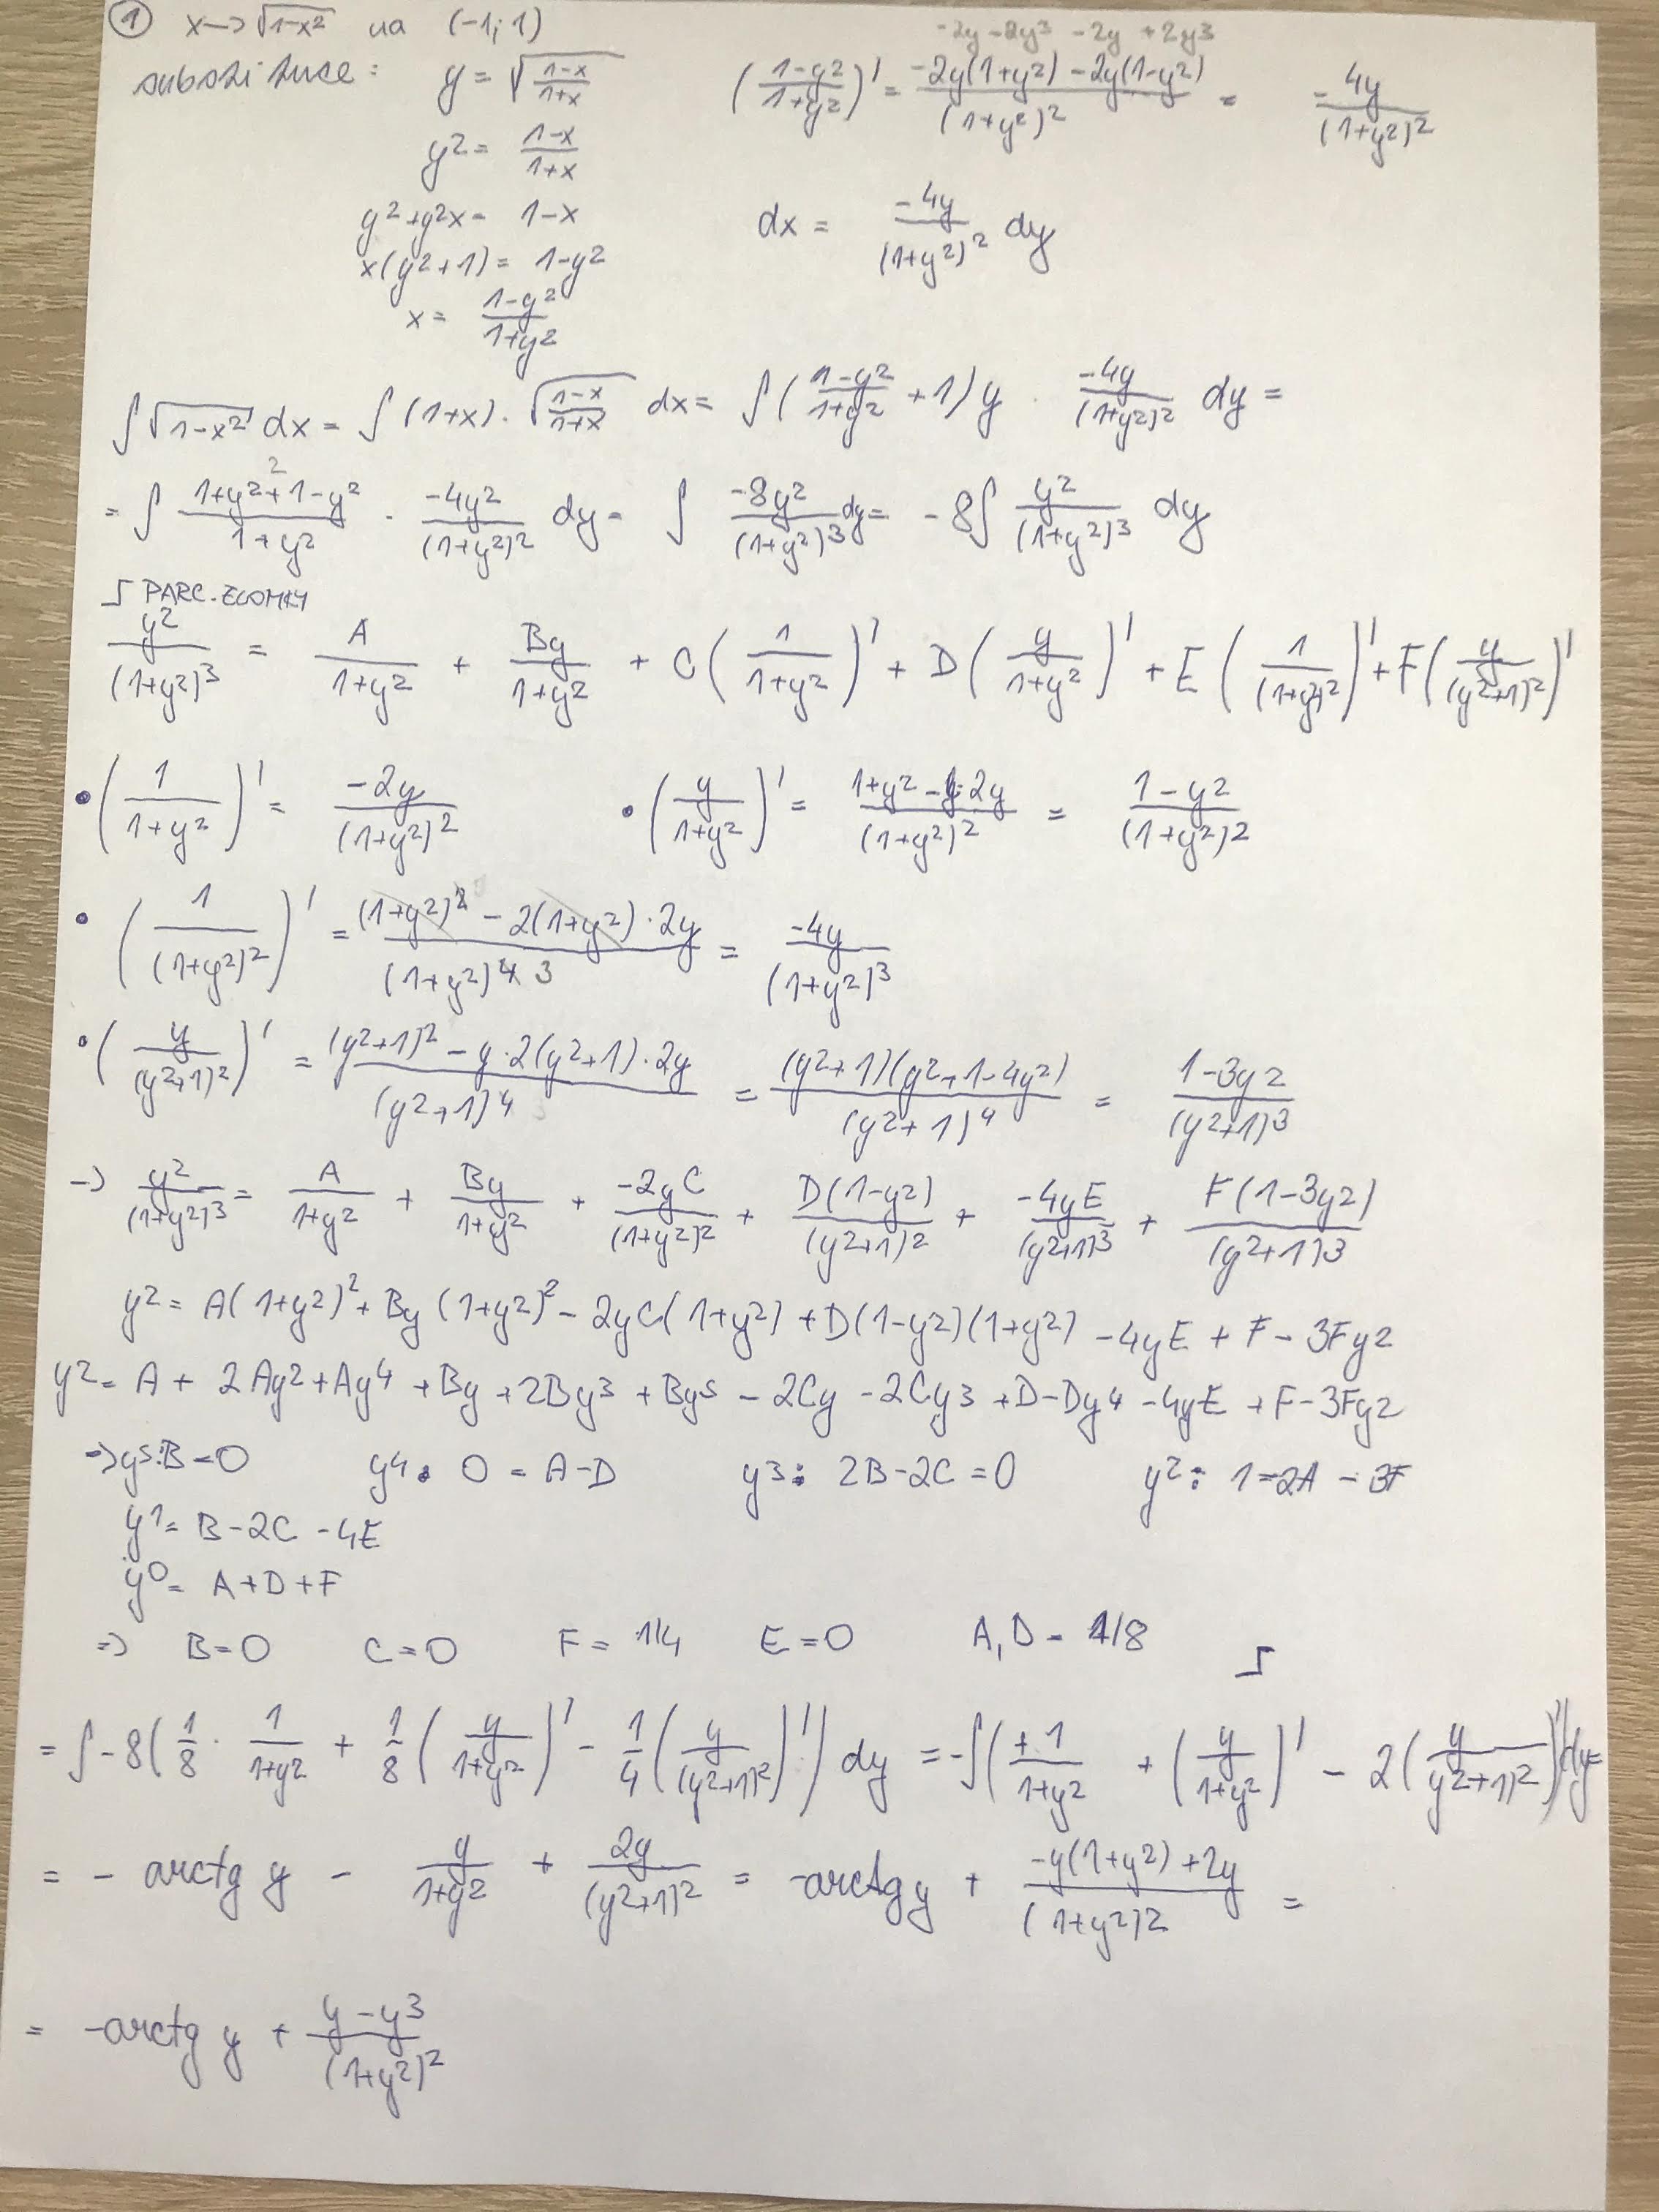 ① x→√(1-x²) na (-1; 1)
-2y -2y³ -2y +2y³
substituce: y = √((1-x)/(1+x)) ((1-y²)/(1+y²))' = (-2y(1+y²) -2y(1-y²))/(1+y²)² = -4y/(1+y²)²
y² = (1-x)/(1+x)
y²+y²x = 1-x dx = -4y/(1+y²)² dy
x(y²+1) = 1-y²
x = (1-y²)/(1+y²)
∫√(1-x²) dx = ∫(1+x)·√((1-x)/(1+x)) dx = ∫((1-y²)/(1+y²) +1) y · -4y/(1+y²)² dy =
2
= ∫ (1+y²+1-y²)/(1+y²) · -4y²/(1+y²)² dy = ∫ -8y²/(1+y²)³ dy = -8∫ y²/(1+y²)³ dy
PARC. ZLOMKY
y²/(1+y²)³ = A/(1+y²) + By/(1+y²) + C(1/(1+y²))' + D(y/(1+y²))' + E(1/(1+y²)²)' + F(y/(y²+1)²)'
• (1/(1+y²))' = -2y/(1+y²)² • (y/(1+y²))' = (1+y² -y·2y)/(1+y²)² = (1-y²)/(1+y²)²
• (1/(1+y²)²)' = ((1+y²)² - 2(1+y²)·2y)/(1+y²)⁴ 3 = -4y/(1+y²)³
• (y/(y²+1)²)' = ((y²+1)² - y·2(y²+1)·2y)/(y²+1)⁴ = ((y²+1)(y²+1-4y²))/(y²+1)⁴ = (1-3y²)/(y²+1)³
→ y²/(1+y²)³ = A/(1+y²) + By/(1+y²) + -2yC/(1+y²)² + D(1-y²)/(y²+1)² + -4yE/(y²+1)³ + F(1-3y²)/(y²+1)³
y² = A(1+y²)² + By(1+y²)² - 2yC(1+y²) + D(1-y²)(1+y²) - 4yE + F - 3Fy²
y² = A + 2Ay² + Ay⁴ + By + 2By³ + By⁵ - 2Cy - 2Cy³ + D - Dy⁴ - 4yE + F - 3Fy²
⇒ y⁵: B = 0 y⁴: 0 = A-D y³: 2B-2C = 0 y²: 1 = 2A - 3F
y¹ = B - 2C - 4E
y⁰ = A+D+F
⇒ B = 0 C = 0 F = 1/4 E = 0 A,D = 1/8
= ∫ -8(1/8 · 1/(1+y²) + 1/8 (y/(1+y²))' - 1/4 (y/(y²+1)²)') dy = -∫(+1/(1+y²) + (y/(1+y²))' - 2(y/(y²+1)²)') dy =
= - arctg y - y/(1+y²) + 2y/(y²+1)² = -arctg y + (-y(1+y²) +2y)/(1+y²)² =
= -arctg y + (y-y³)/(1+y²)²